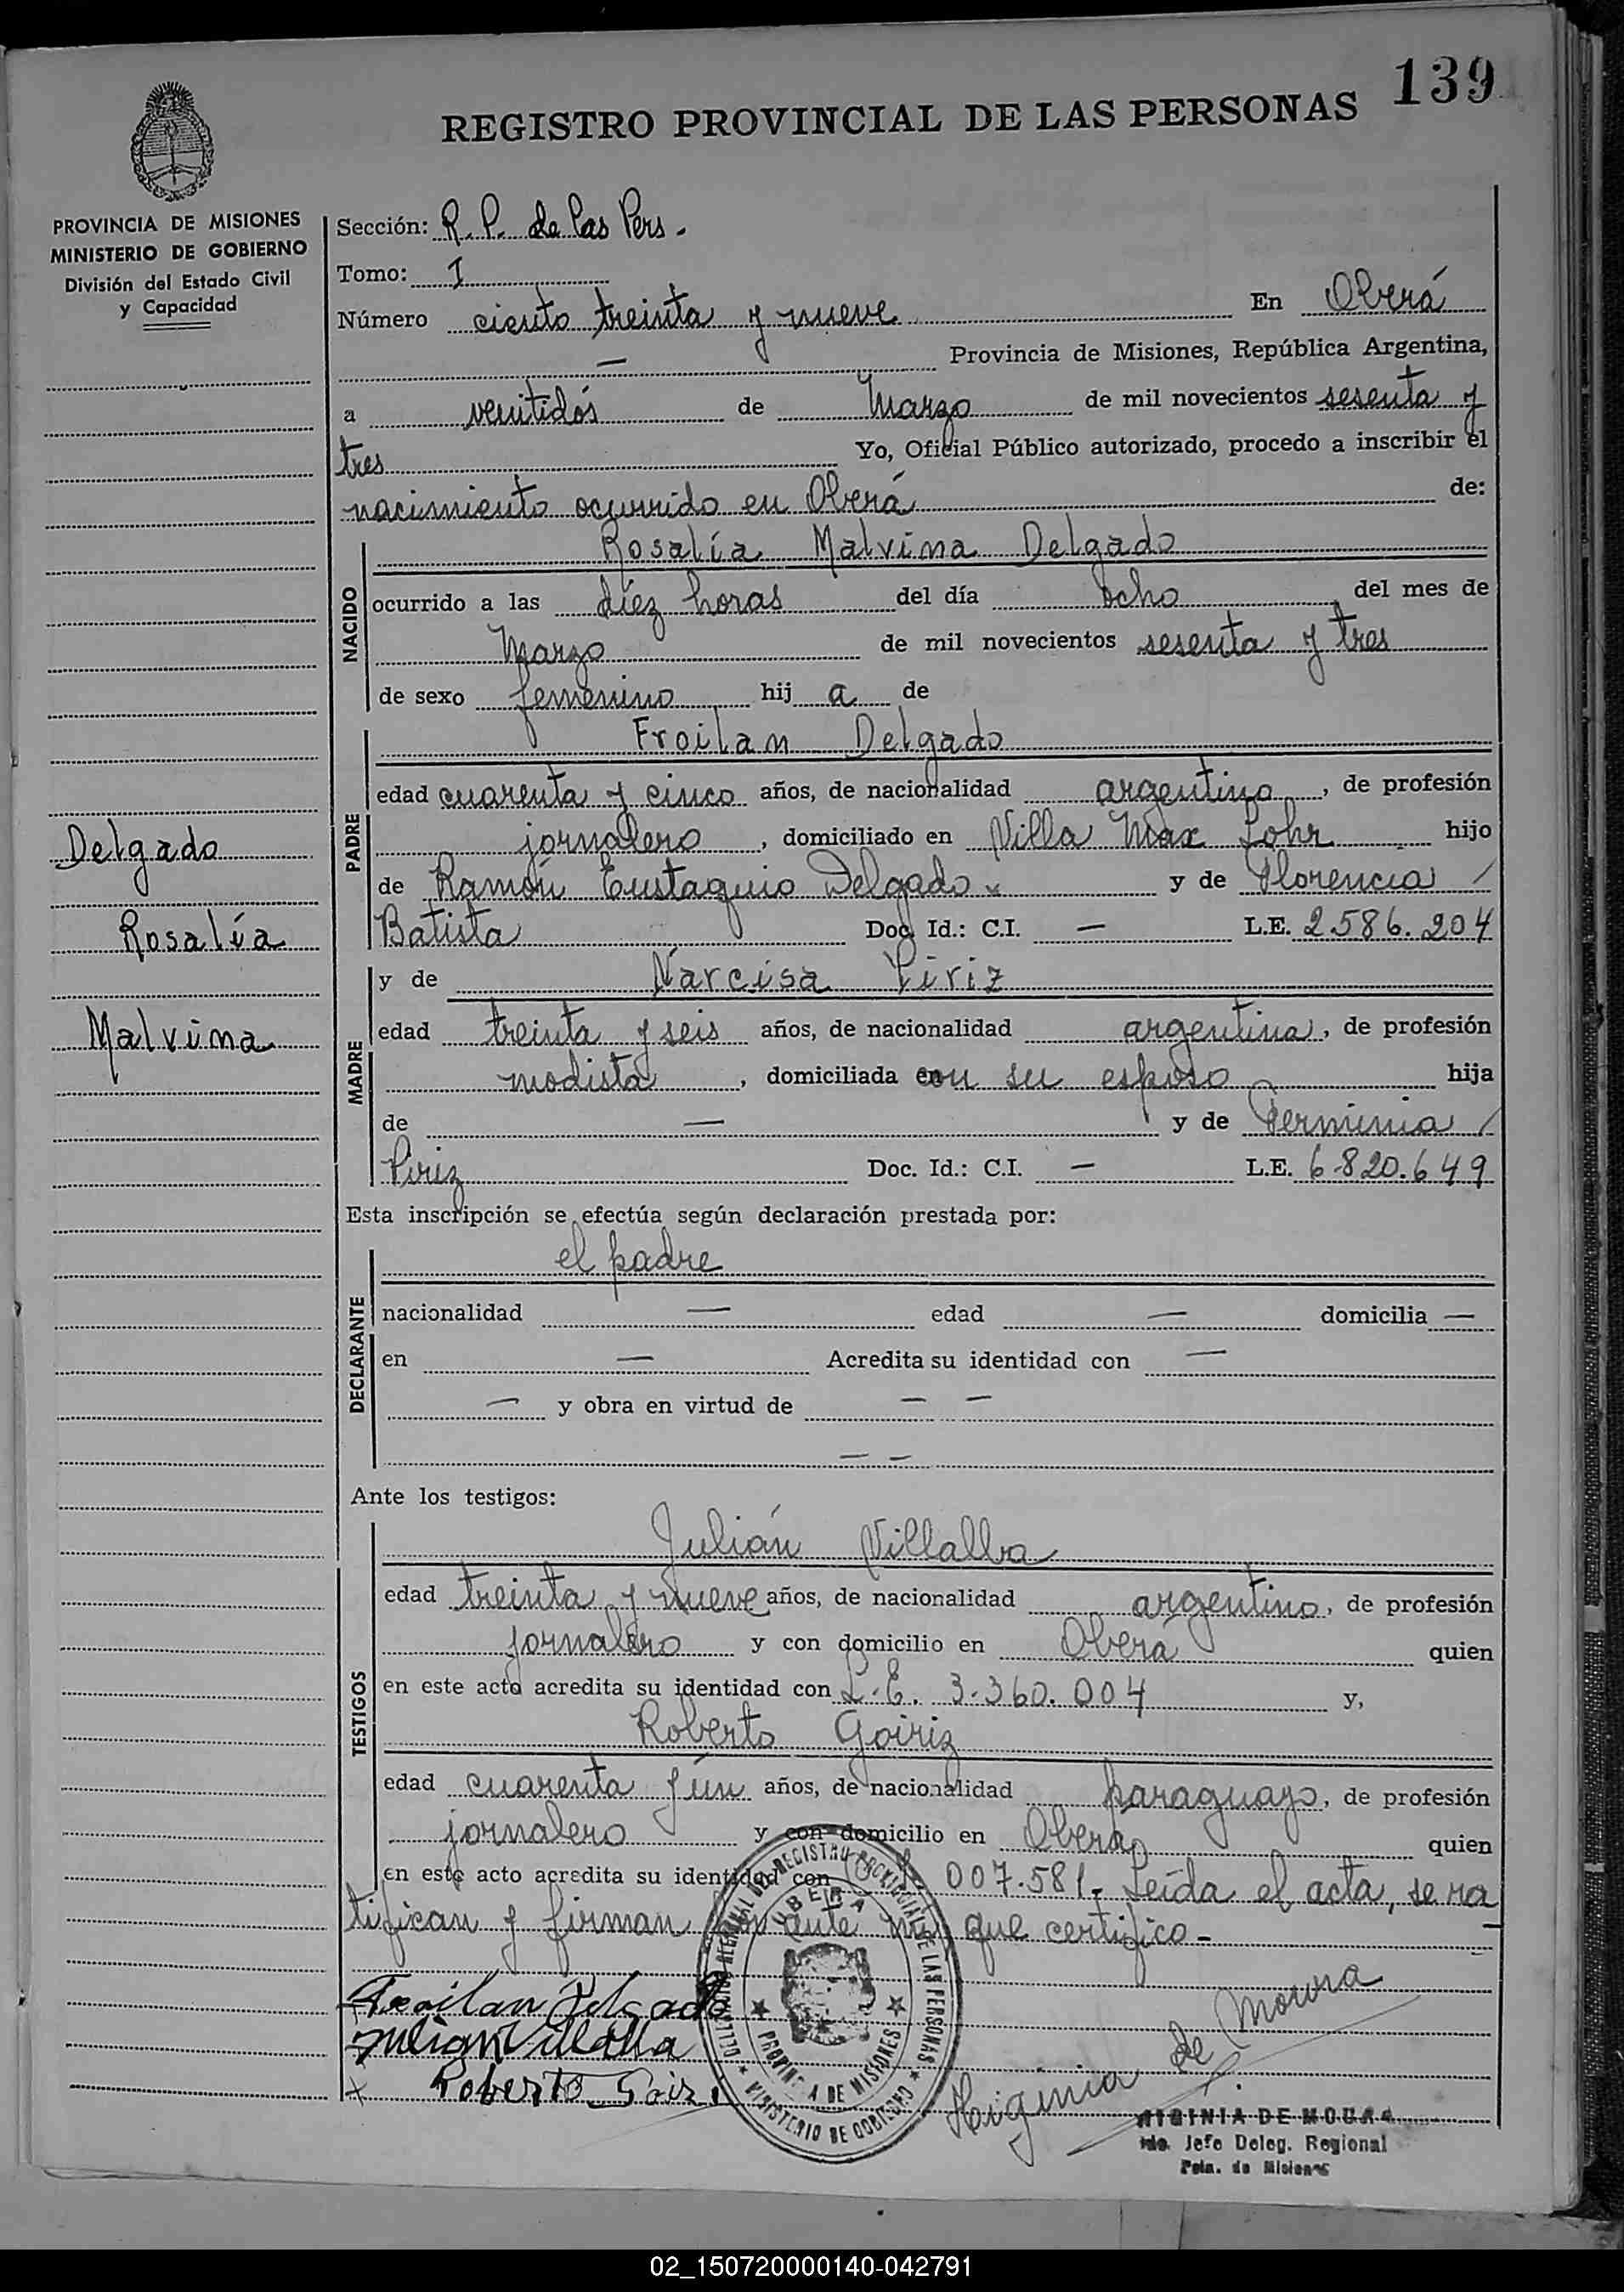 139
REGISTRO PROVINCIAL DE LAS PERSONAS
PROVINCIA DE MISIONES
MINISTERIO DE GOBIERNO
División del Estado Civil
y Capacidad
Delgado
Rosalía
Malvina
Sección: R. P. de las Pers.
Tomo: I
Número ciento treinta y nueve En Oberá
— Provincia de Misiones, República Argentina,
a veintidós de Marzo de mil novecientos sesenta y
tres Yo, Oficial Público autorizado, procedo a inscribir el
nacimiento ocurrido en Oberá de:
NACIDO
Rosalía Malvina Delgado
ocurrido a las diez horas del día ocho del mes de
Marzo de mil novecientos sesenta y tres
de sexo femenino hij a de
PADRE
Froilan Delgado
edad cuarenta y cinco años, de nacionalidad argentino, de profesión
jornalero, domiciliado en Villa Max Lohr hijo
de Ramón Eustaquio Delgado y de Florencia
Batista Doc. Id.: C.I. — L.E. 2.586.204
MADRE
y de Narcisa Piriz
edad treinta y seis años, de nacionalidad argentina, de profesión
modista, domiciliada con su esposo hija
de — y de
Piriz Doc. Id.: C.I. — L.E. 6.820.649
Esta inscripción se efectúa según declaración prestada por:
DECLARANTE
el padre
nacionalidad — edad — domicilia —
en — Acredita su identidad con —
— y obra en virtud de — —
— —
Ante los testigos:
TESTIGOS
Julián Villalba
edad treinta y nueve años, de nacionalidad argentino, de profesión
jornalero y con domicilio en Oberá quien
en este acto acredita su identidad con L.E. 3.360.004 y,
Roberto Goiriz
edad cuarenta y ún años, de nacionalidad paraguayo, de profesión
jornalero y con domicilio en Oberá quien
en este acto acredita su identidad con 007.581. Leída el acta, se ra
tifican y firman por ante mí que certifico.-
Froilan Delgado
Julian Villalba
Roberto Goiriz
DELEGACION REGIONAL DEL REGISTRO PROVINCIAL DE LAS PERSONAS
OBERA
PROVINCIA DE MISIONES
MINISTERIO DE GOBIERNO
Higinia de Moura
HIGINIA DE MOURA
Jefe Deleg. Regional
Pcia. de Misiones
02_150720000140-042791